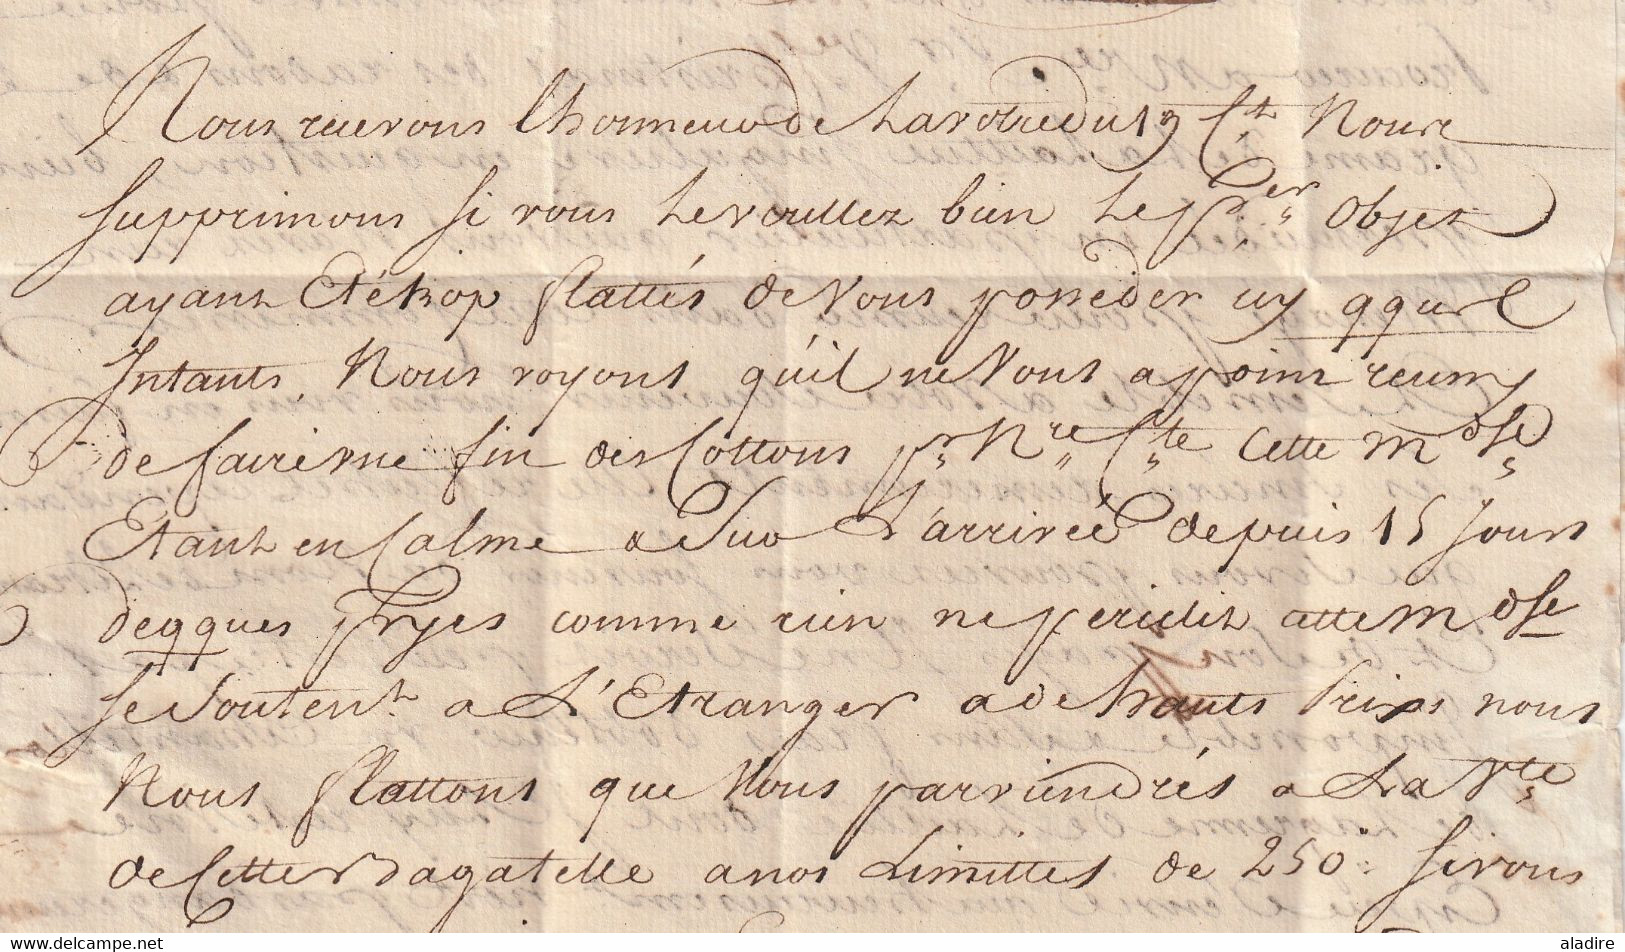 Nous recevons lhonneur de La votre du 19 Ct. Nous
supprimons si vous Le voullez bien Le pr.er Objet
ayant Eté trop flattés de vous posseder icy qques
Instants. Nous voyons qu'il ne Vous a point reussy
de faire une fin des Cottons pr. Nre. Cte. Cette Mdse.
Etant en Calme a Sur L'arrivée depuis 15 Jours
de qques comme rien ne periclit cette Mdse
se Soutent. a L'Etranger a de hauts Prix nous
Nous flattons que Vous parviendrés a La Vte.
de Cette Bagatelle a nos Limittes de 250 Si vous
aladire